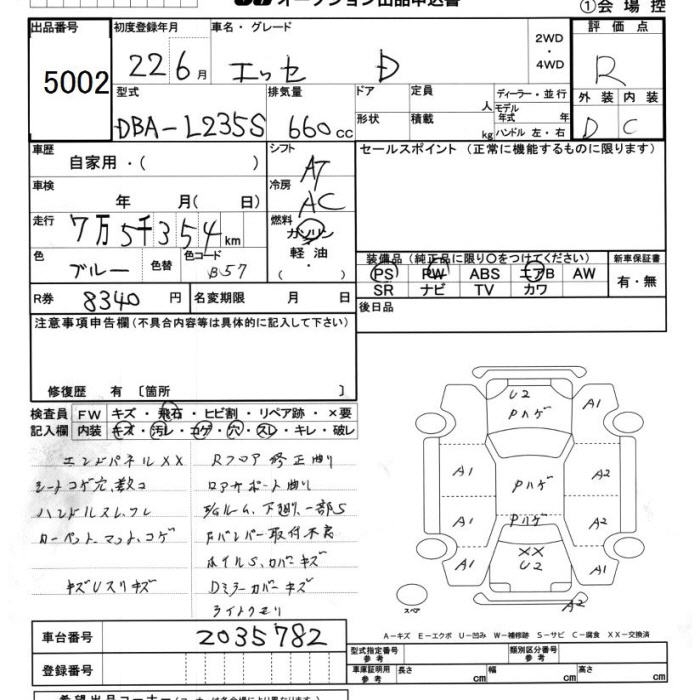 オークション出品申込書
①会場控
出品番号
初度登録年月
車名・グレード
評価点
5002
22 6月
エッセ D
2WD
・
4WD
R
型式
排気量
ドア
定員
ディーラー・並行
外装 内装
人
モデル
年式 年
DBA-L235S
660cc
形状
積載
kg
ハンドル 左・右
D C
車歴
シフト
セールスポイント (正常に機能するものに限ります)
自家用・( )
AT
車検
冷房
年 月( 日)
AC
走行
燃料
7万5千354km
ガソリン
軽油
・( )
色
色替
色コード
ブルー
B57
装備品 (純正品に限り○をつけてください)
新車保証書
PS PW ABS エアB AW
有・無
SR ナビ TV カワ
R券 8340円
名変期限 月 日
後日品
注意事項申告欄 (不具合内容等は具体的に記入して下さい)
修復歴 有 [箇所 ]
検査員 FW キズ・飛石・ヒビ割・リペア跡・×要
記入欄 内装 キズ・汚レ・コゲ・穴・スレ・キレ・破レ
エンドパネルXX
Rフロア修正曲り
シートコゲ穴、数コ
ロアサポート曲り
ハンドルスレ、フレ
E/Gルーム、下廻、一部S
カーペット、マット、コゲ
Fバンパー取付不良
ホイルS、カバーキズ
キズUスリキズ
Dミラーカバーキズ
ライトクモリ
U2
Pハゲ
A1
A1
A1
A2
Pハゲ
Pハゲ
A1
A2
XX
U2
A1
A1
スペア
A2
A-キズ E-エクボ U-凹み W-補修跡 S-サビ C-腐食 XX-交換済
車台番号 2035782
型式指定番号
参考
類別区分番号
参考
登録番号
車庫証明用
参考
長さ cm
幅 cm
高さ cm